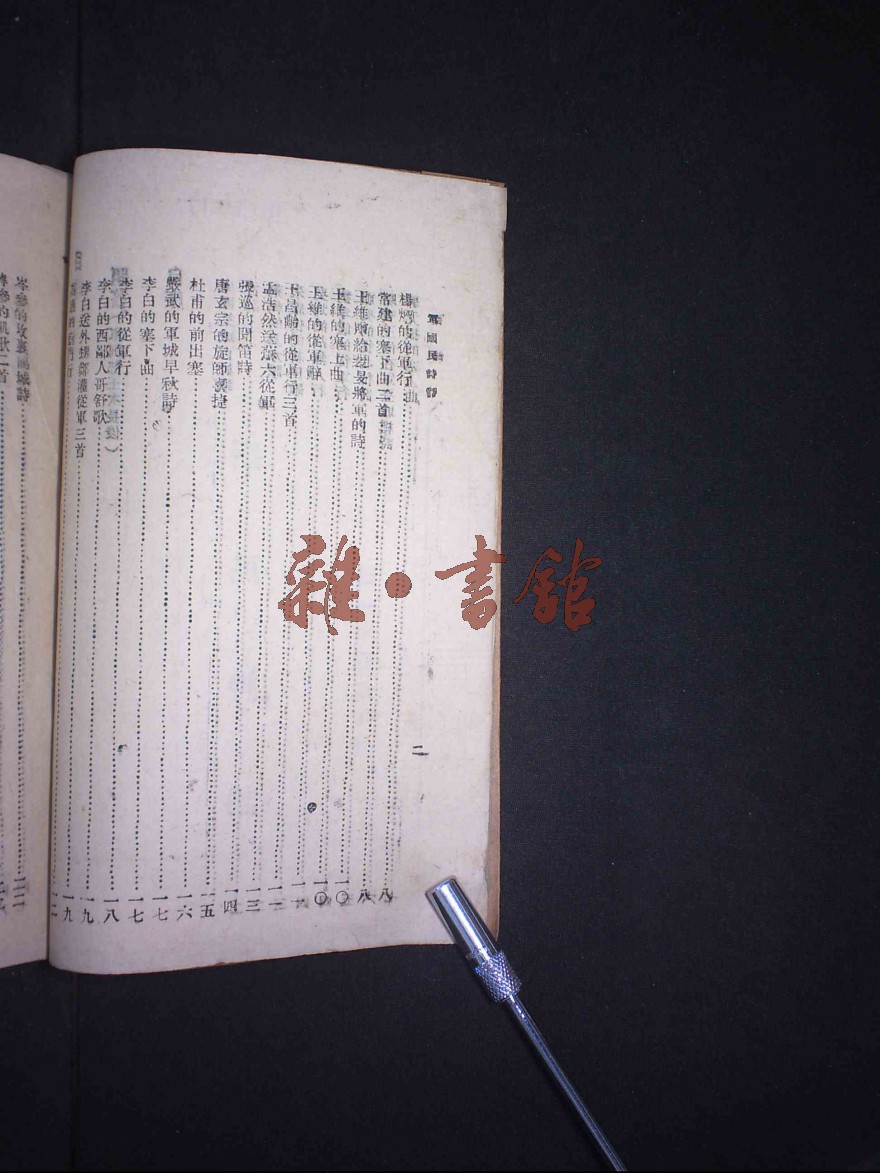 軍國民詩話
二
楊炯的從軍行……八
常建的塞下曲二首……八
王維贈給裴旻將軍的詩……一〇
王維的塞上曲……一〇
王維的從軍辭……一一
王昌齡的從軍行三首……一一
孟浩然送蘇六從軍……一三
張巡的聞笛詩……一四
唐玄宗的旋師喜捷……一五
杜甫的前出塞……一六
嚴武的軍城早秋詩……一七
李白的塞下曲……一七
李白的從軍行……一八
李白的西鄙人哥舒歌……一九
李白送外甥鄭灌從軍三首……一九
岑參的攻襄城詩
岑參的凱歌二首
雜·書館